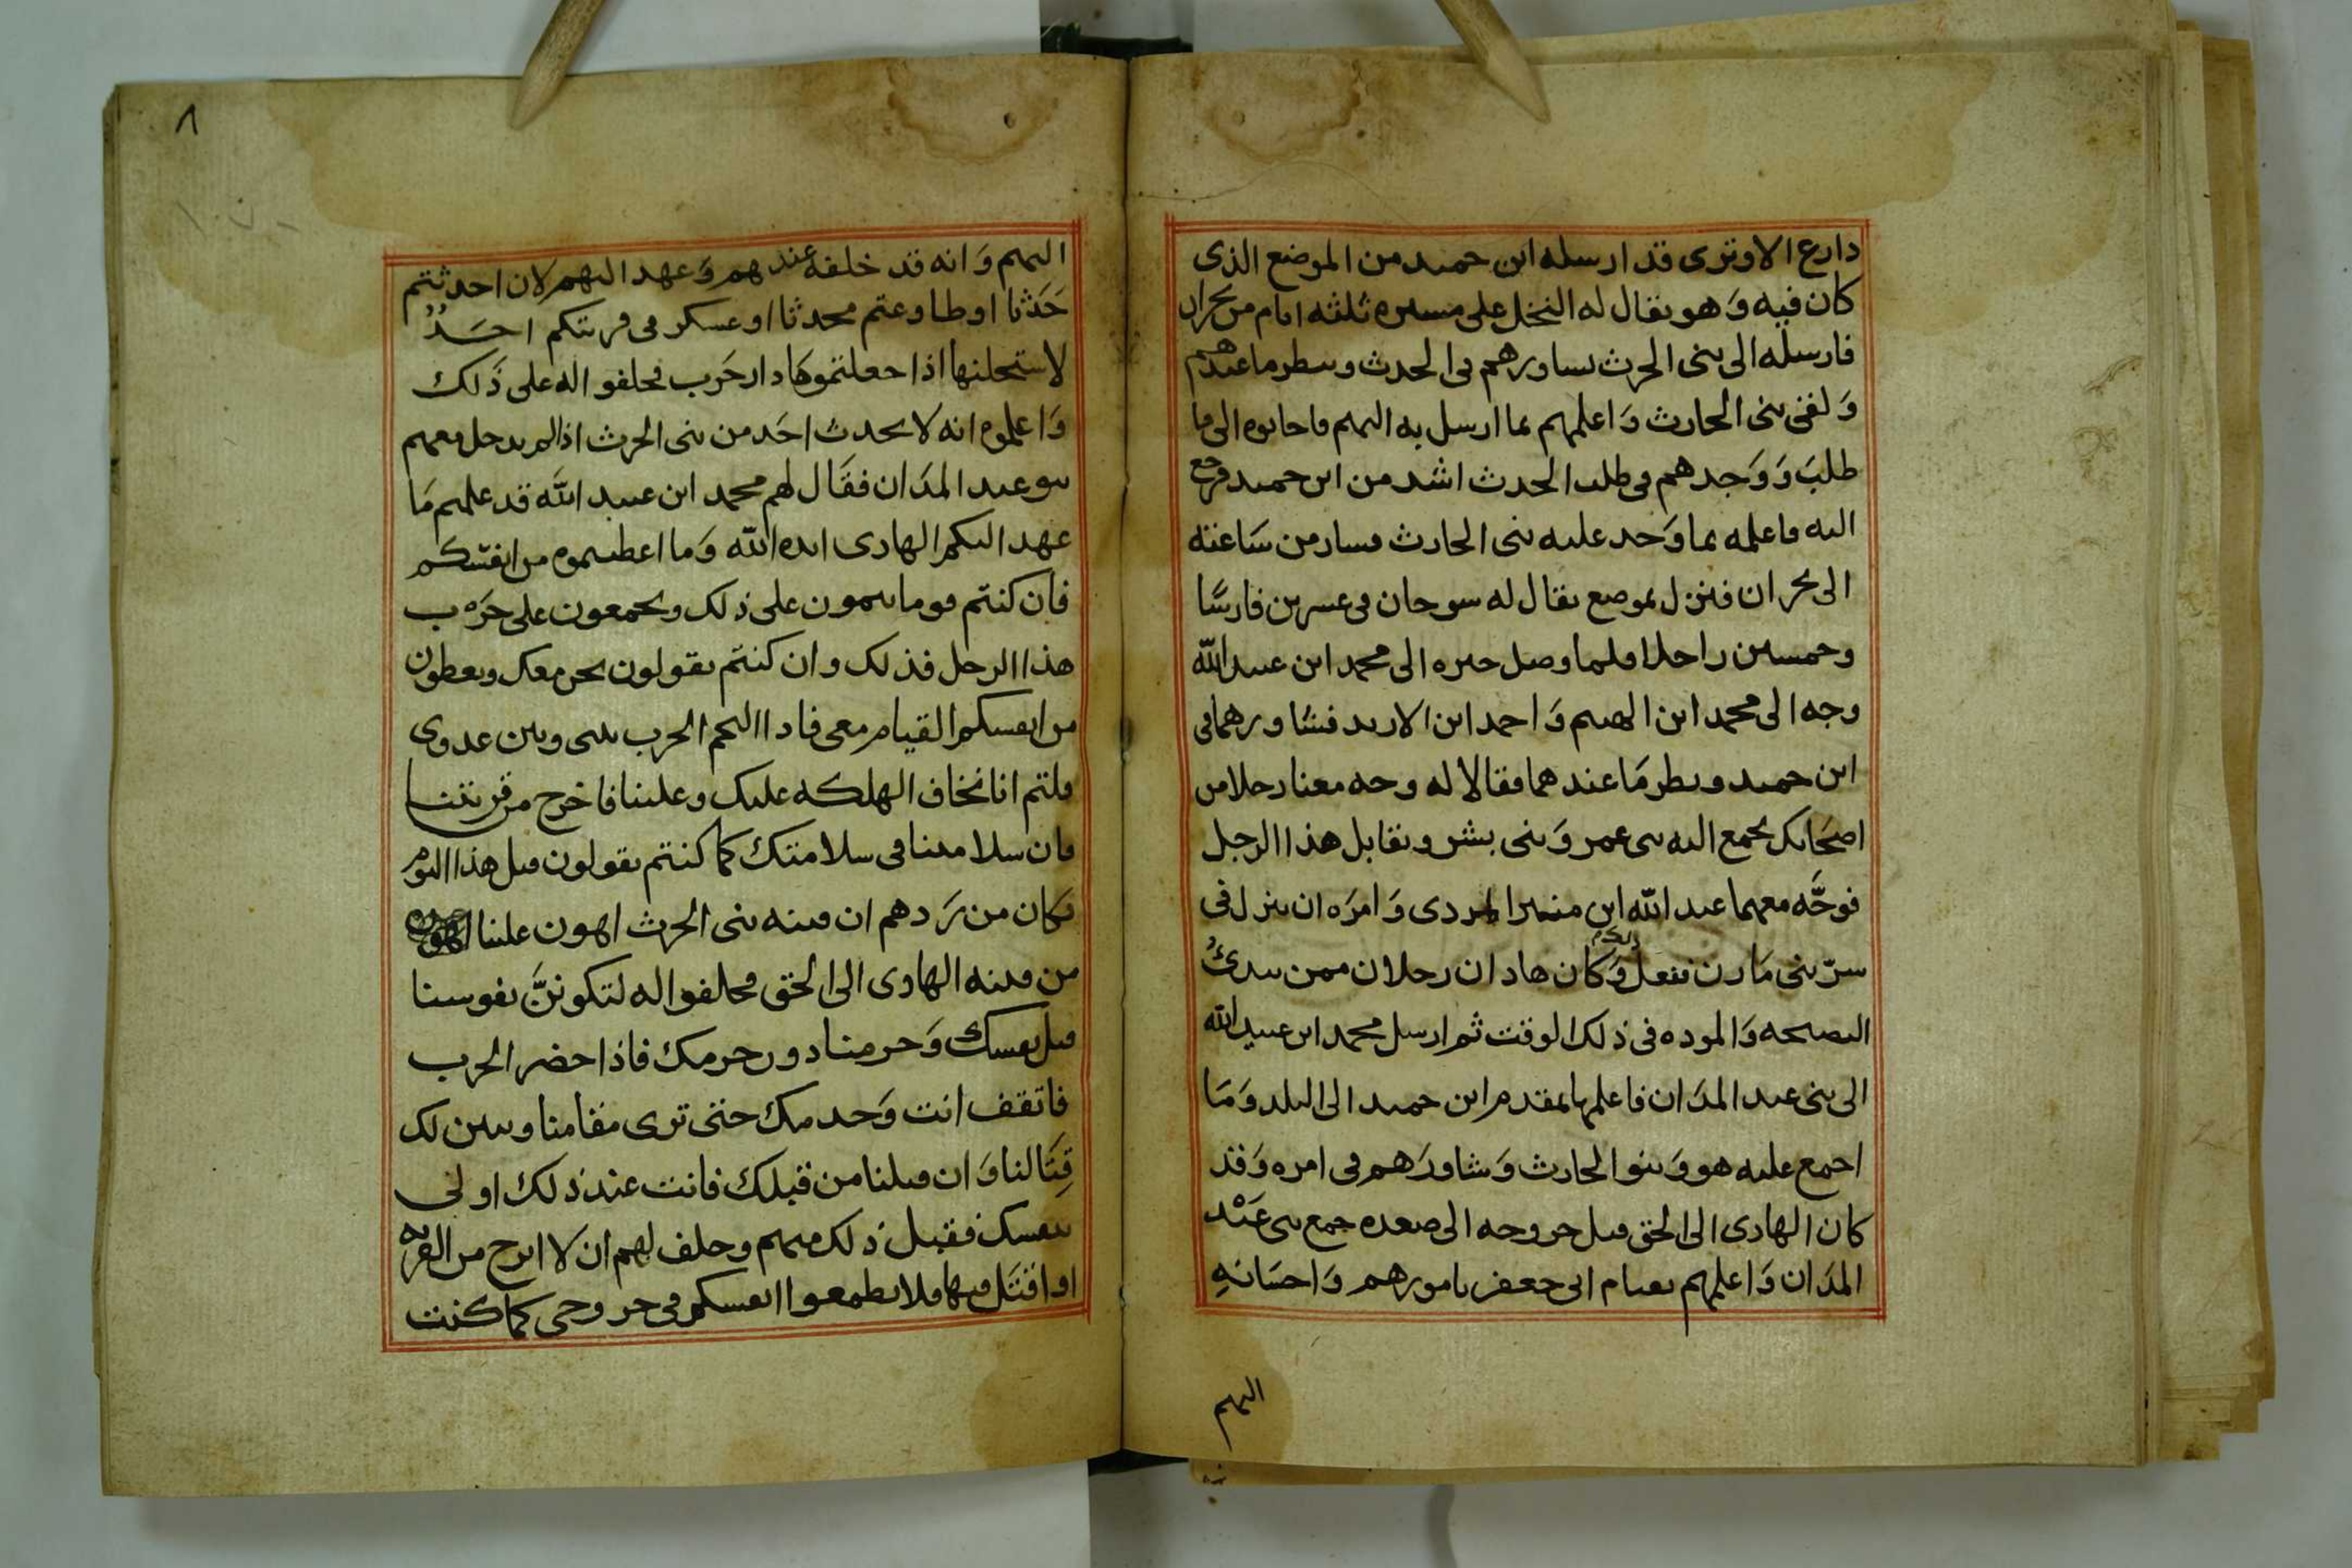 دارع الاوترى قد ارسله ابن حميد من الموضع الذى
كان فيه وَهو يقال له النخل على مسيره ثلثه ايام من نجران
فارسله الى بنى الحرث يساورهم فى الحدث وينظر ما عندهم
وَلقى بنى الحارث وَاعلمهم بما ارسل به اليهم فاجابوه الى ما
طلبَ وَوَجدهم فى طلب الحدث اشد من ابن حميد فرجع
اليه فاعلمه بما وَجد عليه بنى الحارث فسار من سَاعته
الى نجران فنزل بموضع يقال له سوحان فى عسرين فارسًا
وخمسين راجلا فلما وصل خبره الى محمد ابن عبيد الله
وجه الى محمد ابن الهيثم وَاحمد ابن الاربد فشاورهما فى
ابن حميد وينظر مَا عندهما فقالا له وجه معنا رجلا من
اصحَابك يجمع اليه بنى عمر وَبنى بشر ونقابل هذا الرجل
فوجَّه معهما عبد الله ابن منير دى وَامرَه ان ينزل فى
سرّ بنى مَازن ففعل ذلك وَكان هاذان رجلان ممن يبدىُ
النصيحه وَالموده فى ذلك الوقت ثم ارسل محمد ابن عبيد الله
الى بنى عبد المدَان فاعلمها بمقدم ابن حميد الى البلد وَمَا
اجمع عليه هو وَبنوا الحارث وَشاورَهم فى امره وَقد
كان الهادى الى الحق قبل خروجه الى صعده جمع بنى عَبْد
المدَان وَاعلمهم بقيام ابى جعفر بامورهم وَاحسَانهِ
اليهم
٨
اليهم وَانه قد خلفه عندهم وَعهد اليهم لان احدثتم
حَدَثا اوطاوعتم محدثا اوعسكر فى قريتكم احسَدٌ
لاستحلنها اذا جعلتموهَا دار حَرب فحلفوا له على ذَلك
وَاعلموه انه لا يحدث احَد من بنى الحرث اذا لم يدخل معهم
بنو عبد المدَان فقَال لهم محمد ابن عبيد الله قد علمتم مَا
عهد اليكم الهادى ايده الله وَما اعطيتموه من انفسكم
فان كنتم قوما تتمون على ذلك وتجمعون على حَرب
هذا الرجل فذلك وان كنتم تقولون نحن معك وتعطون
من انفسكم القيام معى فاذا التحم الحرب بينى وبين عدوى
قلتم انا نخاف الهلكه عليك وعلينا فاخرج من قريتنا
فان سلامتنا فى سلامتك كما كنتم تقولون قبل هذا اليوم
فكان من رَدهم ان فتنه بنى الحرث اهون علينا
من فتنه الهادى الى الحق فحلفوا له لتكوننَّ نفوسنا
قبل نفسك وَحرمنا دون حرمك فاذا حضر الحرب
فاتقف انت وَخدمك حتى ترى مقامنا ويبين لك
قِتَالنا وَان قتلنا من قبلك فانت عند ذلك اولى
بنفسك فقبل ذلك منهم وحلف لهم ان لا ابرح من القريه
اواقتَل فيها فلا تطمعوا انفسكم فى خروجى كما كنت